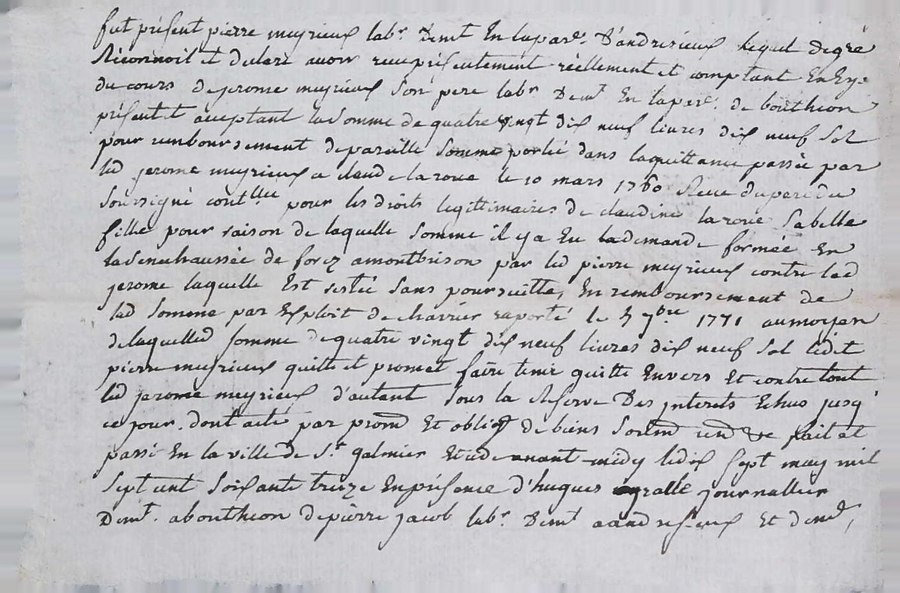 fut présent pierre meyrieux labr. demt. En la parse. d'andresieux Lequel de gré
Reconnoit et declare avoir reeu présentement réellement et comptant En Espe
du cours de jerome meyrieux son pere labr demt. En la parse. de boutheon
présent et aceptant la somme de quatre vingt dix neuf livres dix neuf sol
pour remboursement de pareille somme portée dans la quittance passée par
led jerome meyrieux a claude la roue le 10 mars 1760 Reeue du pere du
soussigné contllé pour les droits legittimaires de claudine la roue sa belle
fille pour raison de laquelle somme il ya Eu la demande formée En
la senechaussée de forez a montbrison par led pierre meyrieux contre led
jerome laquelle Est restée sans poursuitte, En remboursement de
lad somme par Exploit de chavrier raporté le 5 7bre 1771 au moyen
de laquelle d somme de quatre vingt dix neuf livres dix neuf sol ledit
pierre meyrieux quitte et promet faire tenir quitte Envers Et contre tout
led jerome meyrieux d'autant sous la Reserve Des jnterets Echus jusqu'
ce jour. dont acte par promd Et obligd de biens soumd rend &e fait et
passé En la ville de St. galmier Etude avant midy le dix sept may mil
sept cent soixante treize En présence d'hugues journallier
demt. a boutheon de pierre jacob labr. demt a andresieux Et demd,